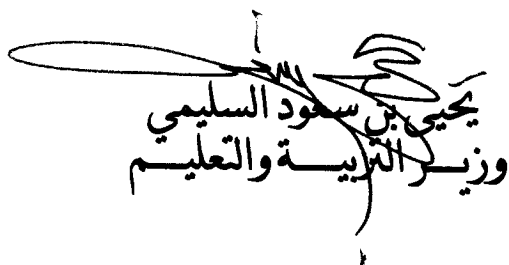 يَحيى بن سعود السليمي
وزيـــر التربيـــة والتعليـــم